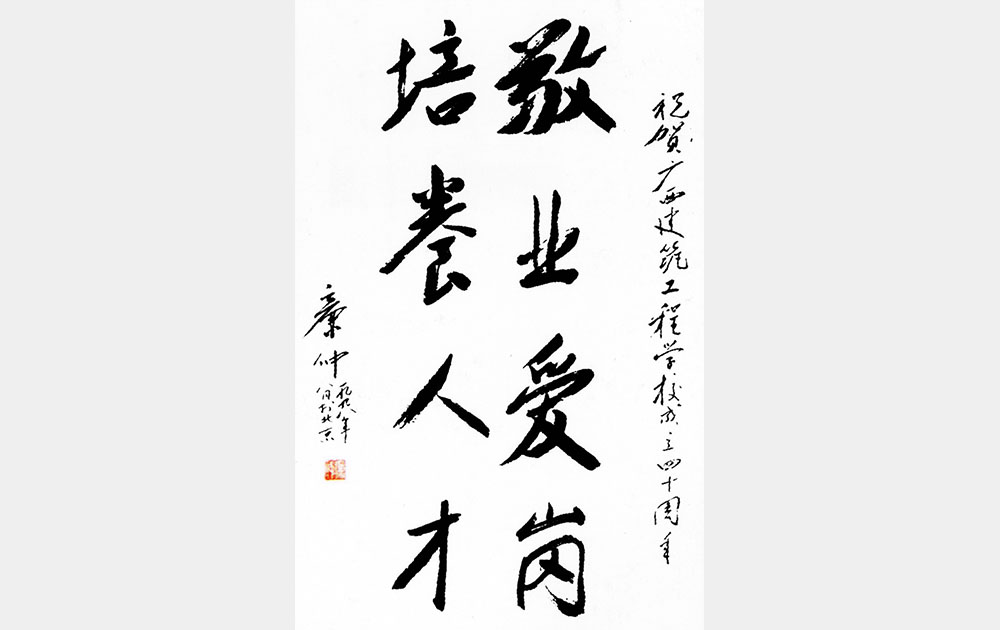 祝贺广西建筑工程学校成立四十周年
敬业爱岗
培养人才
廉仲
一九九八年